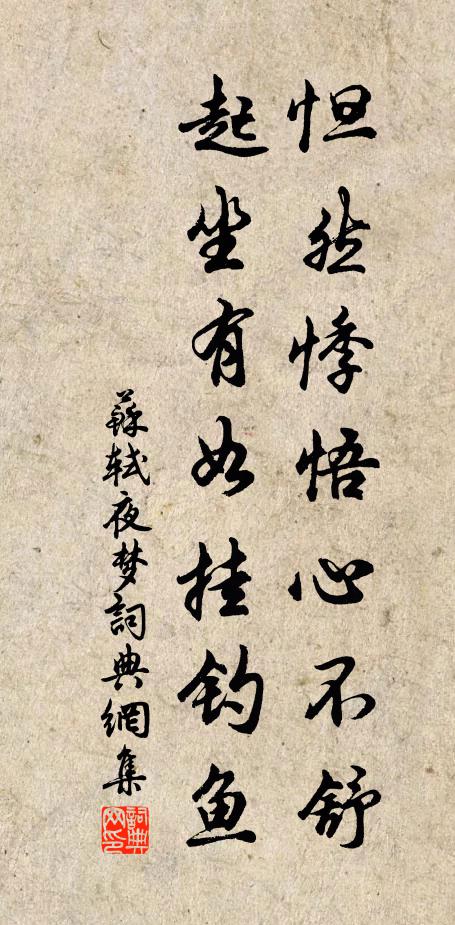 怛然悸悟心不舒
起坐有如挂钓鱼
蘇軾夜梦詞典網集
詞典网印